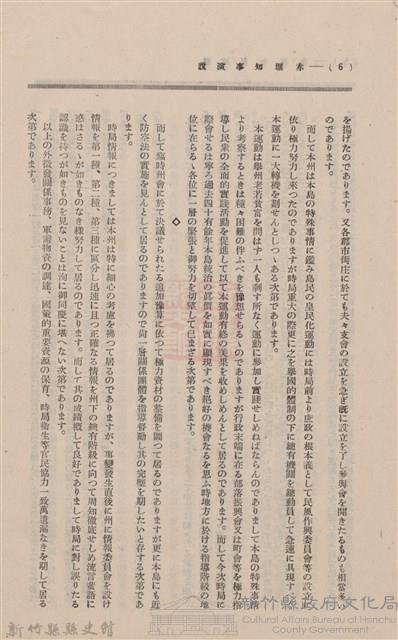 (６)――赤堀知事演說
を揚げたのであります。又各郡市街庄に於ても夫々支會の設立を急ぎ既に設立を了し參與會を開きたるものも相當多い
のであります。
而して本州は本島の特殊事情に鑑み島民の皇民化運動には時局前より庶政の根本義として民風作興委員會等の設立に
依り極力努力し來つたのでありますが時局重大の際更に之を擧國的體制の下に總有機關を總動員して急速に具現する
本運動に一大轉機を劃せんとしつゝある次第であります。
本運動は擧州老若貴富を問はず一人も剩す所なく運動に參加し實踐せしめねばならんのでありまして本島の特殊事情
より考察するときは種々困難の伴ふべきを豫想せらるゝのでありますが行政末端に在る部落振興會又は町會等を極力指
導し民衆の全面的實踐活動を促進して以て本運動有終の美果を收めしめんとして居るのであります。而して今次時局に
際會せるは寧ろ過去四十有餘年本島統治の眞價を如實に顯現すべき絕好の機會なるを思ふ時地方に於ける指導階級の地
位に在らるゝ各位に一層の緊張と御努力を切望して已まざる次第であります。
◇
而して臨時州會に於て決議せられたる追加豫算に依つて極力資材の整備を圖つて居るのでありますが更に本島にも近
く防空法の實施を見んとして居るのでありますので尙一層關係團體を指導督勵し其の完璧を期したいと存する次第であ
ります。
時局情報につきましては本州は特に細心の考慮を拂つて居るのでありますが、事變發生直後に州に情報委員會を設け
情報を第一種、第二種、第三種に區分し迅速に且つ正確なる情報を州下の總有階級に向つて周知徹底せしめ流言蜚語に
惑はさるゝが如きものなき樣努力して居るのであります。而して其の成績概して良好でありまして時局に對し誤りたる
認識を持つが如きものを見ないことは洵に御同慶に堪へない次第であります。
以上の外徵發關係事務、軍需物資の調達、國策的重要資源の保育、時局衞生等官民協力一致萬遺漏なきを期して居る
次第であります。
新竹縣縣史館
新竹縣政府文化局
Cultural Affairs Bureau of Hsinchu
County Government